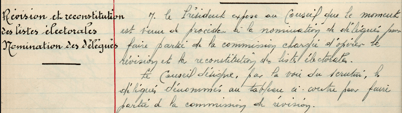 Révision et reconstitution
des listes électorales
Nomination des délégués
M. le Président expose au Conseil que le moment
est venu de procéder à la nomination de délégués pour
faire partie de la commission chargée d'opérer la
révision et la reconstitution des listes électorales.
Le Conseil désigne, par la voie du scrutin, les
délégués dénommés au tableau ci-contre pour faire
partie de la commission de révision.